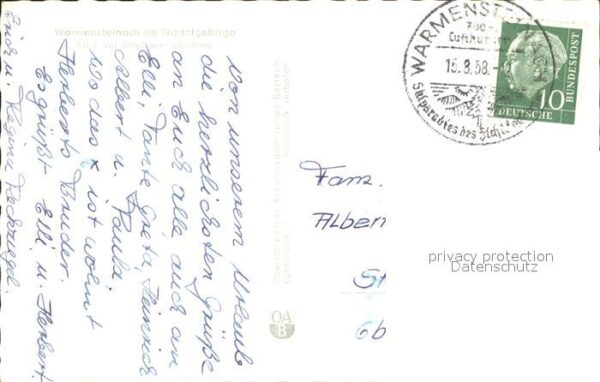 Warmensteinach im Fichtelgebirge
Von unserem Urlaub
die herzlichsten Grüße
an Euch alle auch an
Elli, Tante Greta, Heinrich
Albert u. Paula.
Wo das x ist wohnt
Herberts Bruder.
Es grüßt Elli u. Herbert
Erich u. Klein
WARMENSTEINACH
Luftkurort
15.8.58.
Skiparadies des
10
DEUTSCHE
BUNDESPOST
Fam.
Alber
St
6b
privacy protection
Datenschutz